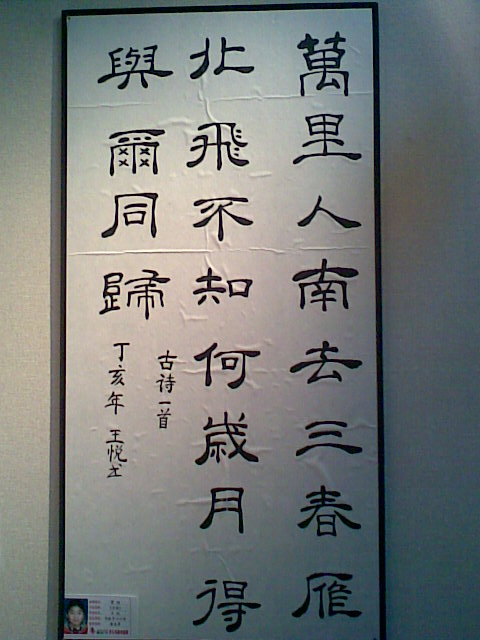 萬里人南去三春雁
北飛不知何歲月得
與爾同歸
古诗一首
丁亥年 王悦书